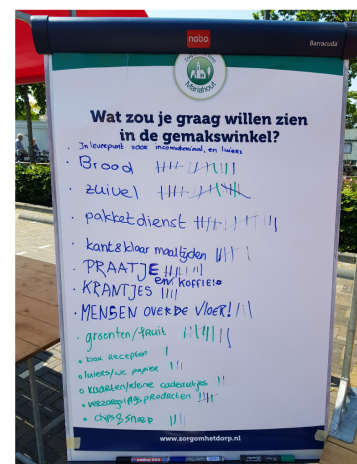 nobo
Barracuda
Mariahout
Wat zou je graag willen zien
in de gemakswinkel?
• Inleverpunt voor incomateriaal, en luiers
• Brood
• zuivel
• pakketdienst
• kant & klaar maaltijden
• PRAATJE
en koffie!
• KRANTJES
• MENSEN OVER DE VLOER!
• groenten/fruit
• box recepten
• luiers/wc papier
• kaarten/kleine cadeautjes
• verzorgings producten
• chips & snoep
www.zorgomhetdorp.nl